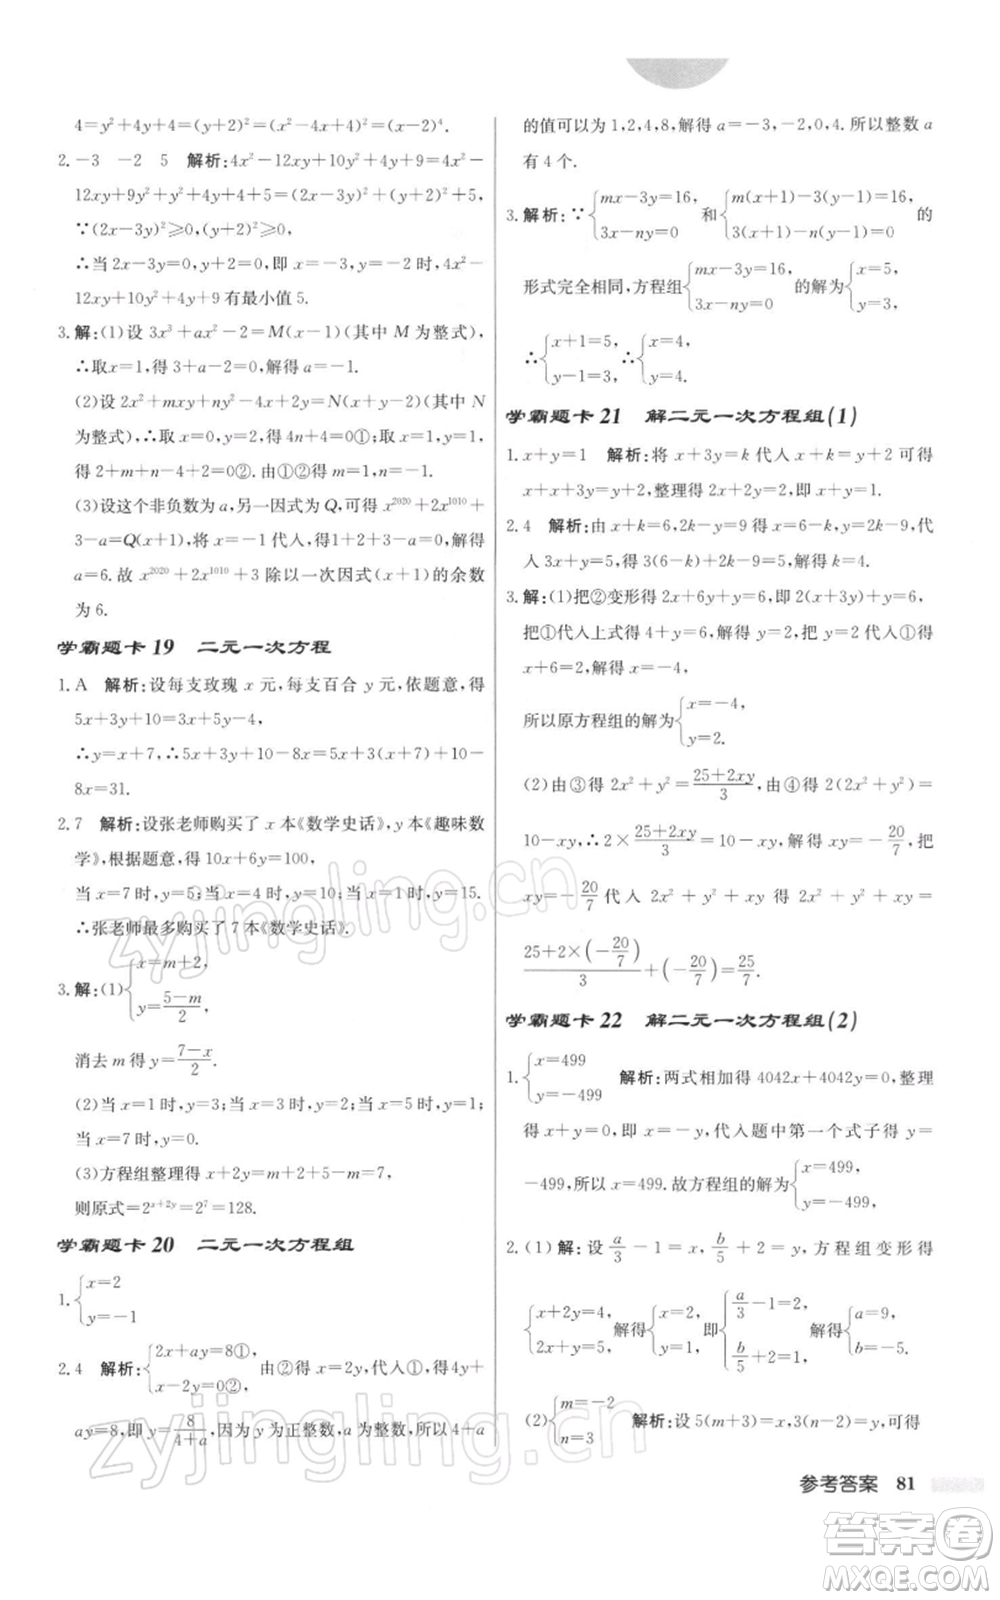 4=y²+4y+4=(y+2)²=(x²-4x+4)²=(x-2)⁴.
2. -3 -2 5 解析:4x²-12xy+10y²+4y+9=4x²-
12xy+9y²+y²+4y+4+5=(2x-3y)²+(y+2)²+5,
∵(2x-3y)²≥0,(y+2)²≥0,
∴当2x-3y=0,y+2=0,即x=-3,y=-2时,4x²-
12xy+10y²+4y+9有最小值5.
3.解:(1)设3x³+ax²-2=M(x-1)(其中M为整式),
∴取x=1,得3+a-2=0,解得a=-1.
(2)设2x²+mxy+ny²-4x+2y=N(x+y-2)(其中N
为整式),∴取x=0,y=2,得4n+4=0①;取x=1,y=1,
得2+m+n-4+2=0②.由①②得m=1,n=-1.
(3)设这个非负数为a,另一因式为Q,可得x²⁰²⁰+2x¹⁰¹⁰+
3-a=Q(x+1),将x=-1代入,得1+2+3-a=0,解得
a=6.故x²⁰²⁰+2x¹⁰¹⁰+3除以一次因式(x+1)的余数
为6.
学霸题卡19 二元一次方程
1.A 解析:设每支玫瑰x元,每支百合y元,依题意,得
5x+3y+10=3x+5y-4,
∴y=x+7,∴5x+3y+10-8x=5x+3(x+7)+10-
8x=31.
2.7 解析:设张老师购买了x本《数学史话》,y本《趣味数
学》,根据题意,得10x+6y=100,
当x=7时,y=5;当x=4时,y=10;当x=1时,y=15.
∴张老师最多购买了7本《数学史话》.
3.解:(1){x=m+2, y=(5-m)/2,
消去m得y=(7-x)/2.
(2)当x=1时,y=3;当x=3时,y=2;当x=5时,y=1;
当x=7时,y=0.
(3)方程组整理得x+2y=m+2+5-m=7,
则原式=2ˣ⁺²ʸ=2⁷=128.
学霸题卡20 二元一次方程组
1.{x=2 y=-1
2.4 解析:{2x+ay=8①, x-2y=0②, 由②得x=2y,代入①,得4y+
ay=8,即y=8/(4+a),因为y为正整数,a为整数,所以4+a
的值可以为1,2,4,8,解得a=-3,-2,0,4.所以整数a
有4个.
3.解析:∵{mx-3y=16, 3x-ny=0 和{m(x+1)-3(y-1)=16, 3(x+1)-n(y-1)=0 的
形式完全相同,方程组{mx-3y=16, 3x-ny=0 的解为{x=5, y=3,
∴{x+1=5, y-1=3, ∴{x=4, y=4.
学霸题卡21 解二元一次方程组(1)
1.x+y=1 解析:将x+3y=k代入x+k=-y+2可得
x+x+3y=-y+2,整理得2x+4y=2,即x+2y=1.
2.4 解析:由x+k=6,2k-y=9得x=6-k,y=2k-9,代
入3x+y=5,得3(6-k)+2k-9=5,解得k=4.
3.解:(1)把②变形得2x+4y+y=6,即2(x+2y)+y=6,
把①代入上式得4+y=6,解得y=2.把y=2代入②得
x+6=2,解得x=-4,
所以原方程组的解为{x=-4, y=2.
(2)由③得2x²+y²=(25+2xy)/3,由④得2(2x²+y²)=
10-xy,∴2×(25+2xy)/3=10-xy,解得xy=-20/7,把
xy=-20/7代入2x²+y²+xy得2x²+y²+xy=
(25+2×(-20/7))/3+(-20/7)=25/7.
学霸题卡22 解二元一次方程组(2)
1.{x=499 y=-499 解析:两式相加得4042x+4042y=0,整理
得x+y=0,即x=-y,代入题中第一个式子得y=
-499,所以x=499.故方程组的解为{x=499, y=-499,
2.(1)解:设a/3-1=x,b/5+2=y,方程组变形得
{x+2y=4, 2x+y=5, 解得{x=2, y=1, 即{a/3-1=2, b/5+2=1, 解得{a=9, b=-5.
(2){m=-2 n=3 解析:设5(m+3)=x,3(n-2)=y,可得
参考答案 81
zyjingling.cn
zyjingling.cn
答案圈
MXQE.COM